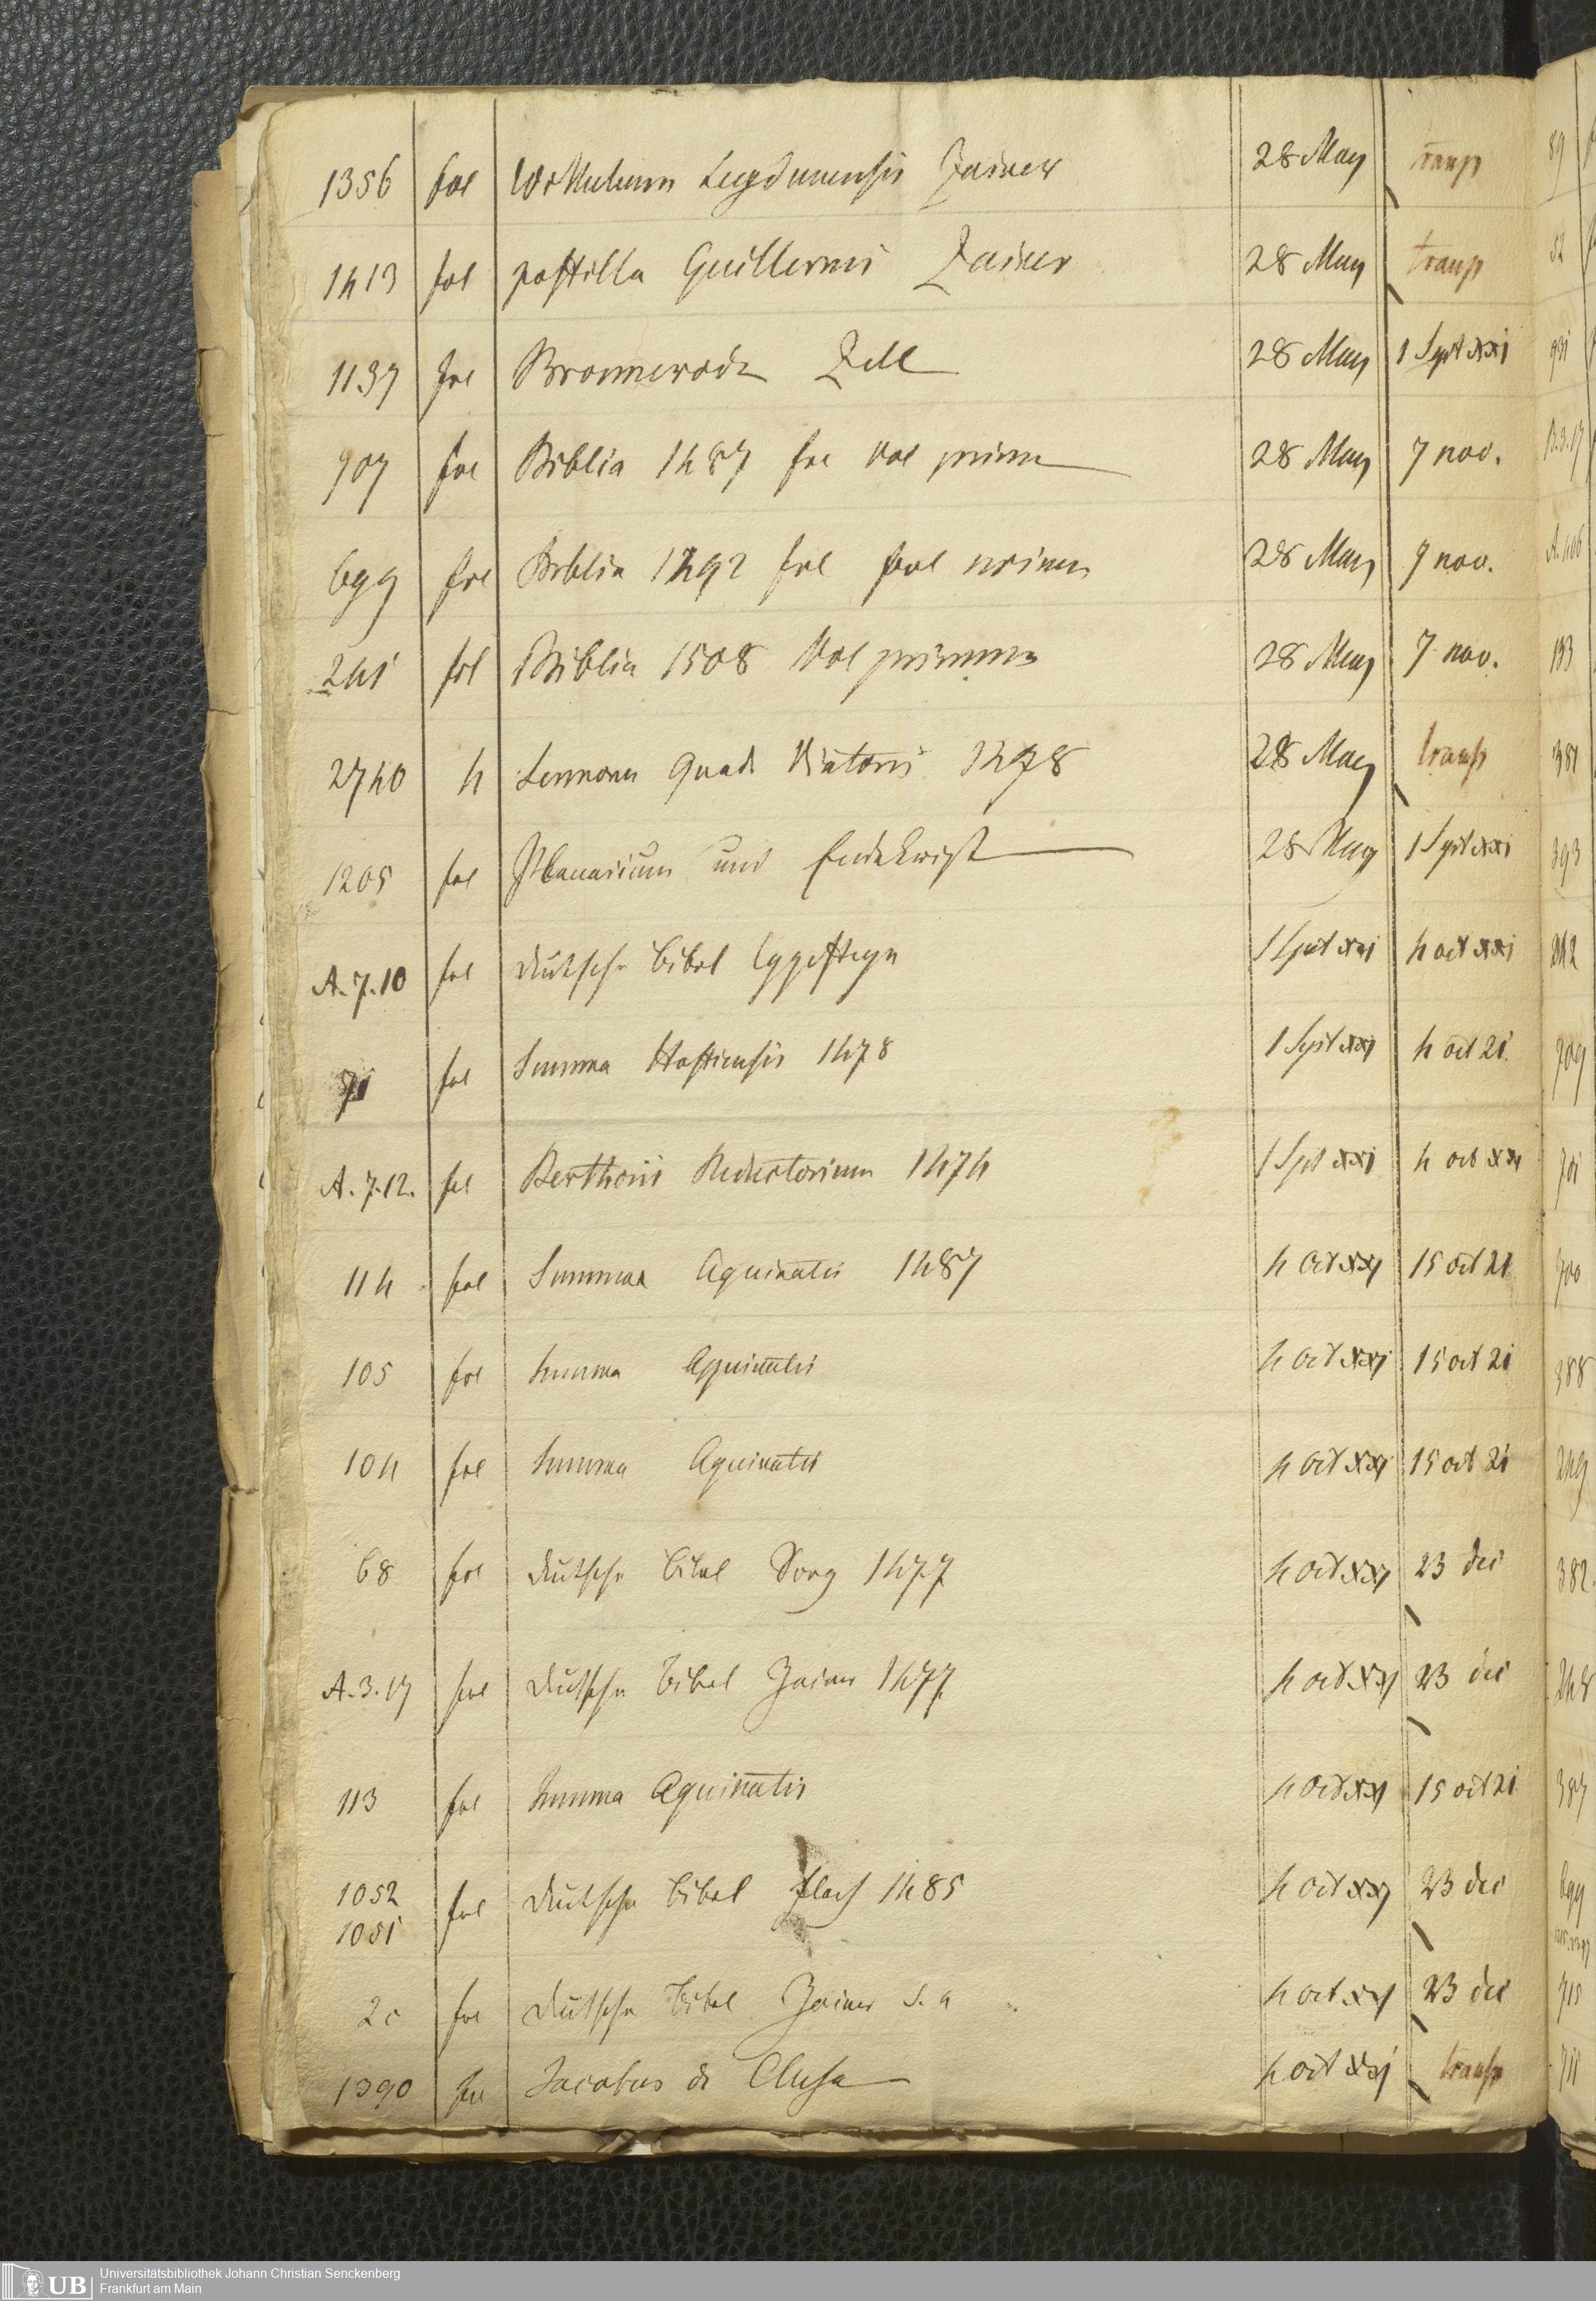 1356 fol Wilhelmus Lugdunensis Zainer 28 May transp
1413 fol postilla Guillermi Zainer 28 May transp
1137 fol Bromnerode Zell 28 May 1 Sept xxi
907 fol Biblia 1487 fol Vol primu 28 May 7 nov.
699 fol Biblia 1492 fol vol primu 28 May 7 nov.
241 fol Biblia 1508 Vol primum 28 May 7 nov.
2740 4 Sermones quad Viatoris 1478 28 May transp
1205 fol und Endekrist 28 May 1 Sept xxi
A.7.10 fol deutsche bibel Eggesteyn 1 Sept xxi 4 oct xxi
71 fol Summa Hostiensis 1478 1 Sept xxi 4 oct 21
A.7.12. fol Berthorii Reductorium 1474 1 Sept xxi 4 oct xxi
114 fol Summa Aquinatis 1487 4 oct xxj 15 oct 21
105 fol Summa Aquinatis 4 oct xxj 15 oct 21
104 fol Summa Aquinatis 4 oct xxj 15 oct 21
68 fol deutsche bibel Sorg 1477 4 oct xxj 23 dec
A.3.17 fol deutsche bibel Zainer 1477 4 oct xxj 23 dec
113 fol Summa Aquinatis 4 oct xxj 15 oct 21
1052 fol deutsche bibel 1485 4 oct xxj 23 dec
1051
20 fol deutsche bibel Zainer s. a 4 oct xxj 23 dec
1390 fol Jacobus de Clusa 4 oct xxj transp
UB Universitätsbibliothek Johann Christian Senckenberg
Frankfurt am Main